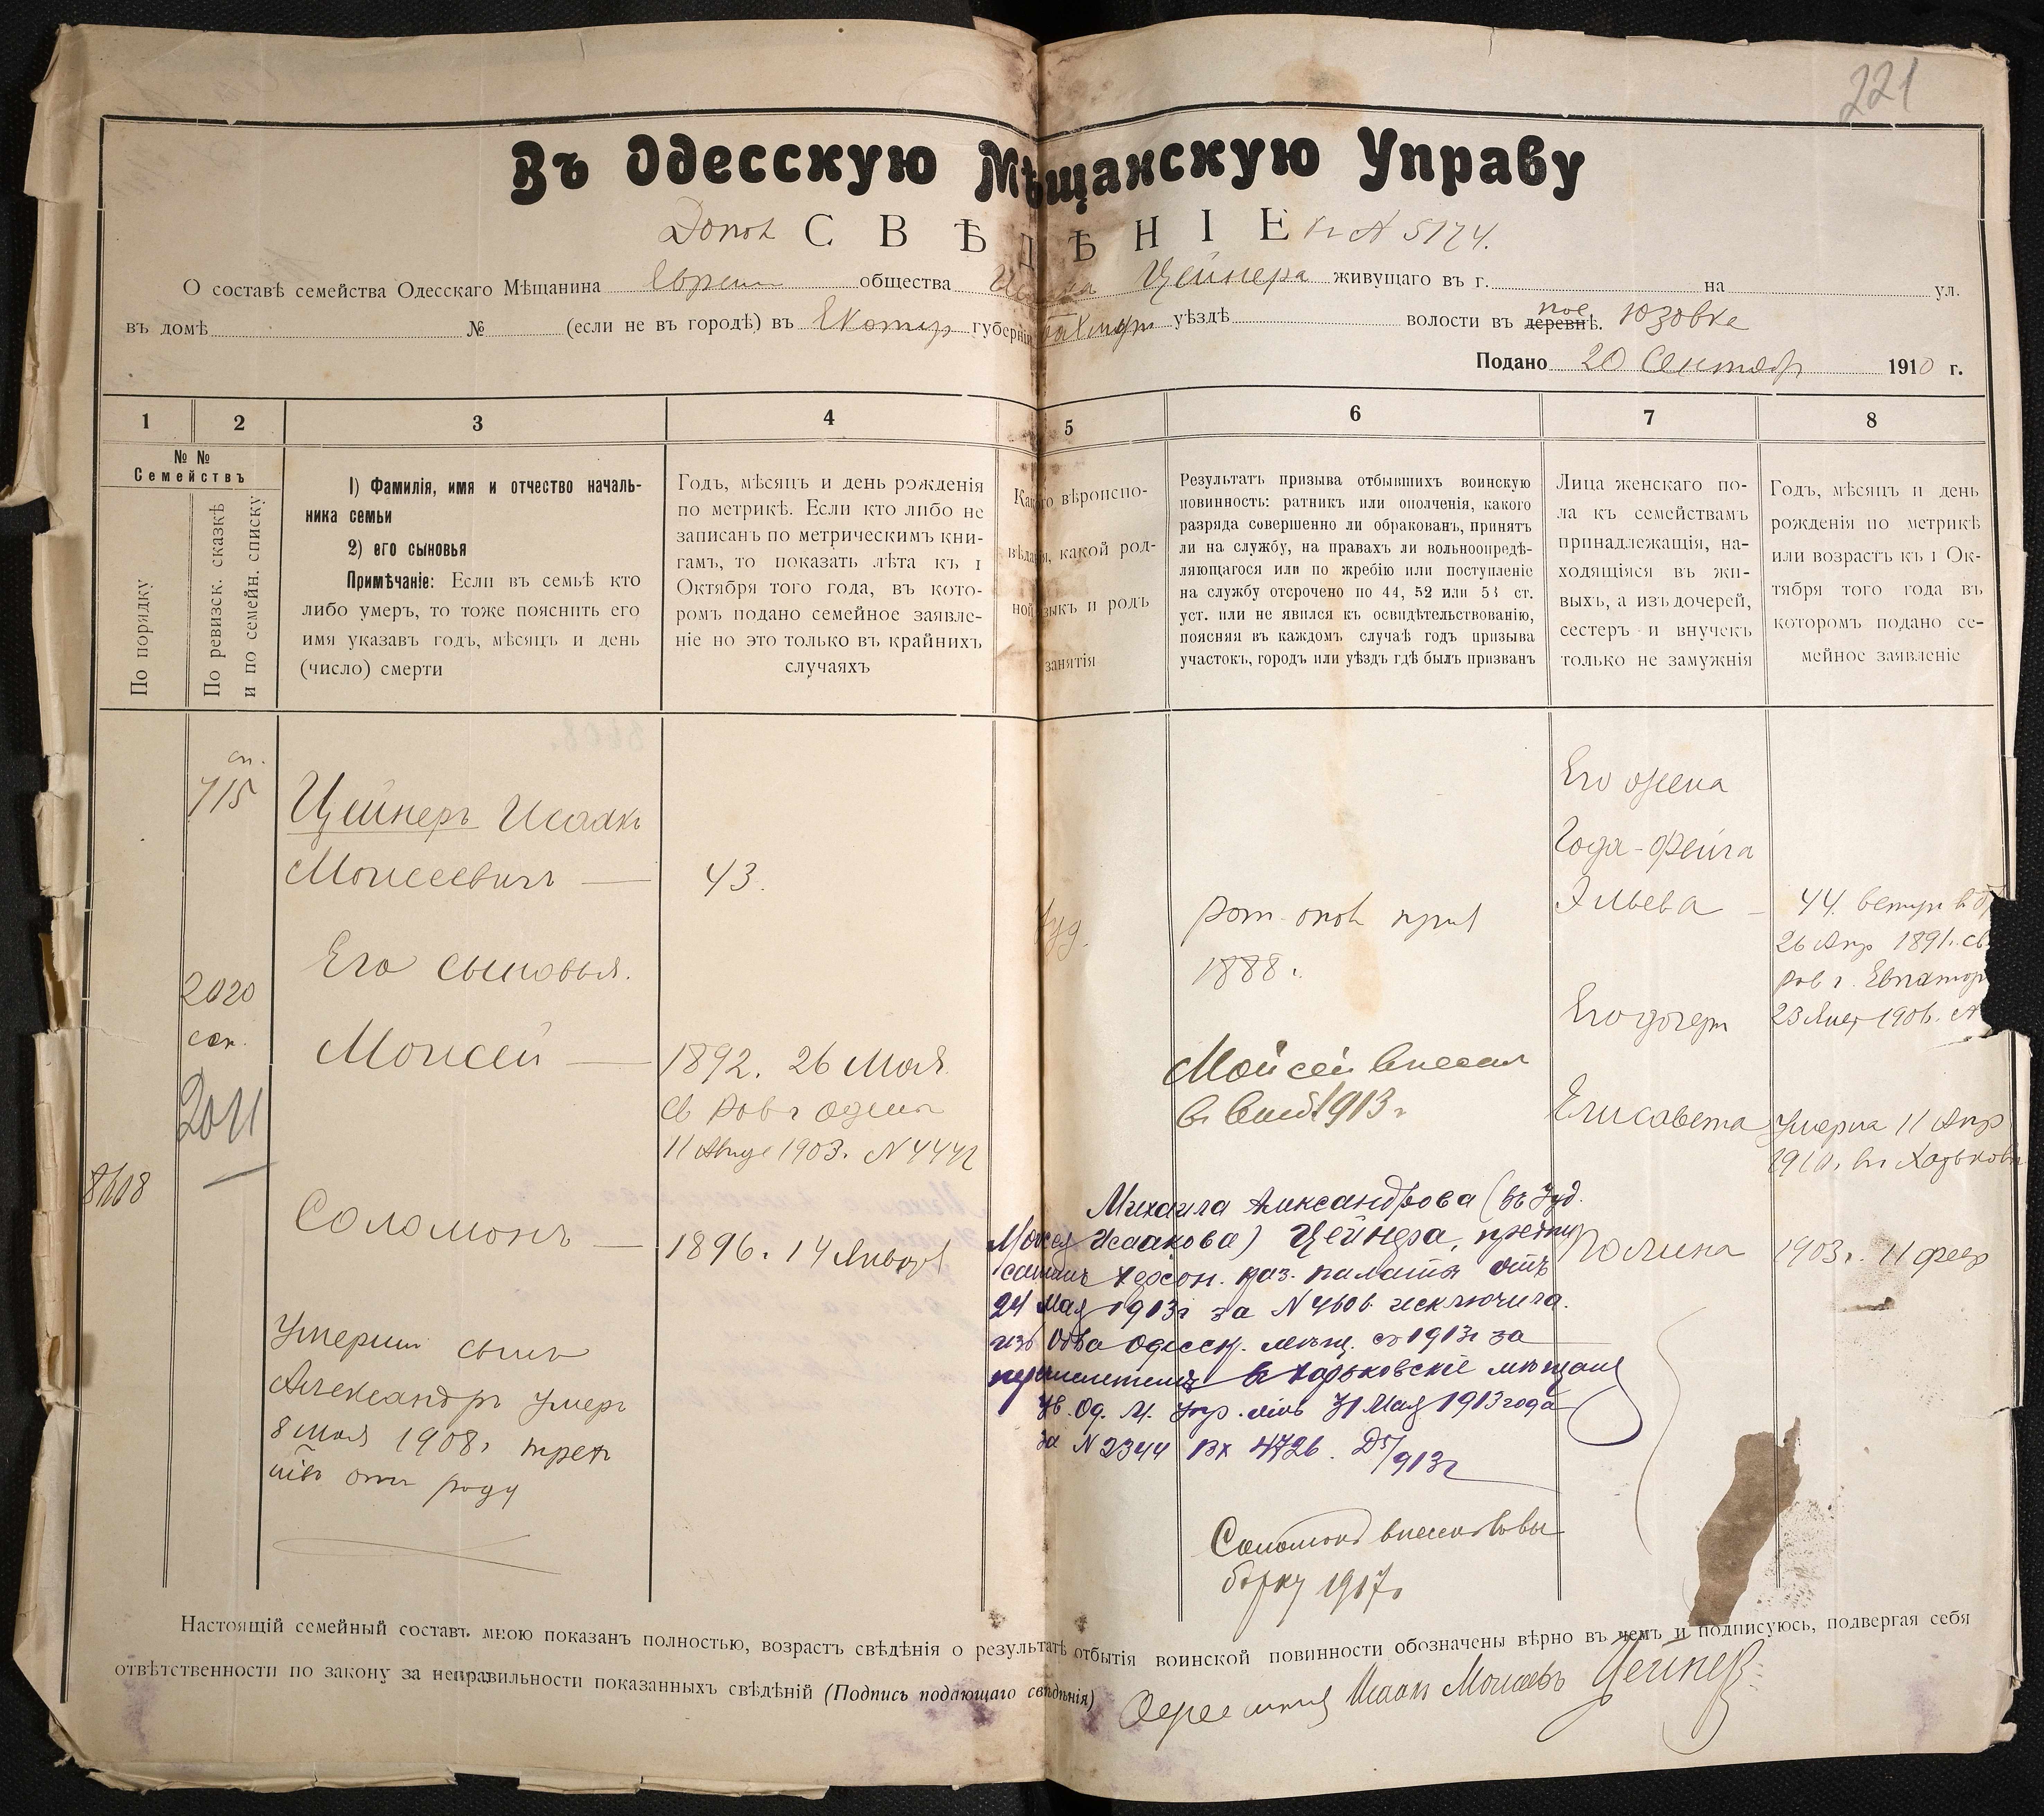 221
Въ Одесскую Мѣщанскую Управу
Допол СВѢДѢНІЕ къ № 5174.
О составѣ семейства Одесскаго Мѣщанина Евреин общества Исаака Цейнера живущаго въ г. на ул.
въ домѣ № (если не въ городѣ) въ Екатер губерніи Бахмут уѣздѣ волости въ деревнѣ. пос Юзовке
Подано 20 Сентябр 1910 г.
1 2 3 4 5 6 7 8
№ №
Семействъ
По порядку
По ревизск. сказкѣ
и по семейн. списку
1) Фамилія, имя и отчество началь-
ника семьи
2) его сыновья
Примѣчаніе: Если въ семьѣ кто
либо умеръ, то тоже пояснить его
имя указавъ годъ, мѣсяцъ и день
(число) смерти
Годъ, мѣсяцъ и день рожденія
по метрикѣ. Если кто либо не
записанъ по метрическимъ кни-
гамъ, то показать лѣта къ 1
Октября того года, въ кото-
ромъ подано семейное заявле-
ніе но это только въ крайнихъ
случаяхъ
Какого вѣроиспо-
вѣданія, какой род-
ной языкъ и родъ
занятія
Результатъ призыва отбывшихъ воинскую
повинность: ратникъ или ополченія, какого
разряда совершенно ли обракованъ, принятъ
ли на службу, на правахъ ли вольноопредѣ-
ляющагося или по жребію или поступленіе
на службу отсрочено по 44, 52 или 53 ст.
уст. или не явился къ освидѣтельствованію,
поясняя въ каждомъ случаѣ годъ призыва
участокъ, городъ или уѣздъ гдѣ былъ призванъ
Лица женскаго по-
ла къ семействамъ
принадлежащія, на-
ходящіяся въ жи-
выхъ, а изъ дочерей,
сестеръ и внучекъ
только не замужнія
Годъ, мѣсяцъ и день
рожденія по метрикѣ
или возрастъ къ 1 Ок-
тября того года въ
которомъ подано се-
мейное заявленіе
сп.
715
2020
2011
8608
Цейнеръ Исаакъ
Моисеевичъ — 43.
Его сыновья.
Моисей — 1892. 26 Мая
св Рав г Одессы
11 Авгус 1903. N 4442
Соломонъ — 1896. 14 Января
Умерший сынъ
Александръ умеръ
8 мая 1908.
отъ роду
Иуд.
рат. опол приз
1888 г.
Мойсей внесен
в 1913 г
Михаила Александрова (въ Іуд.
Мойсея Исаакова) Цейнера, предпи
саніемъ Херсон. каз. палаты отъ
24 Мая 1913г за N 4606 исключила
изъ Об-ва Одесск. мѣщ. съ 1913г за
перечисленіемъ въ Харьковскіе мѣщане
Ув. Од. М. Упр. отъ 31 Мая 1913 года
за N 2344 Вх 4726.
Соломонъ внесенъ в вы
борку 1917г
Его жена
Года-Фейга
Эльева — 44. вступ в бр
26 Апр 1891. св
Рав г. Евпатор
23 Янв 1906.
Его дочери
Елисавета умерла 11 Апр
1910. въ Харькове
Полина 1903 г. 11 февр
Настоящій семейный составъ мною показанъ полностью, возрастъ свѣдѣнія о результатѣ отбытія воинской повинности обозначены вѣрно въ чемъ и подписуюсь, подвергая себя
отвѣтственности по закону за неправильности показанныхъ свѣдѣній (Подпись подающаго свѣдѣнія) Исаак Моисеевъ Цейнеръ